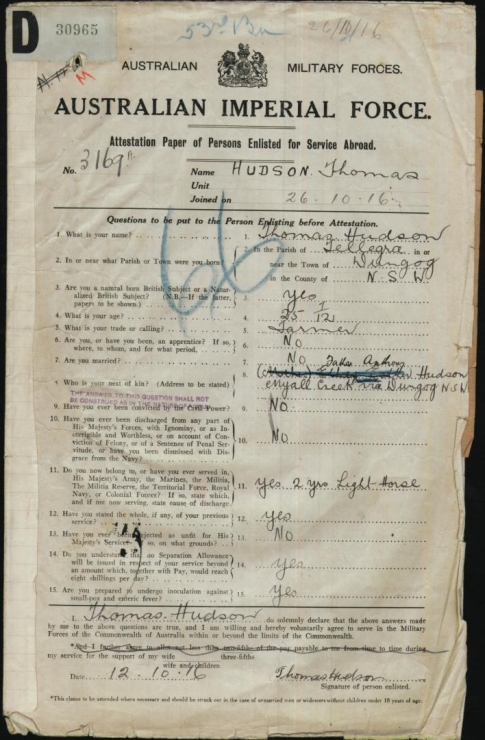 D 30965
53rd Bn
26/10/16
AUSTRALIAN MILITARY FORCES.
AUSTRALIAN IMPERIAL FORCE.
Attestation Paper of Persons Enlisted for Service Abroad.
No. 3169 Name HUDSON. Thomas
Unit
Joined on 26.10.16.
66
Questions to be put to the Person Enlisting before Attestation.
1. What is your name? 1. Thomas Hudson
2. In or near what Parish or Town were you born? 2. In the Parish of Tellegra in or
near the Town of Dungog
in the County of N S W
3. Are you a natural born British Subject or a Natur-
alized British Subject? (N.B.—If the latter,
papers to be shown.) 3. Yes
4. What is your age? 4. 25 7/12
5. What is your trade or calling? 5. Farmer
6. Are you, or have you been, an apprentice? If so,
where, to whom, and for what period. 6. No
7. Are you married? 7. No
8. Who is your next of kin? (Address to be stated) 8. (Father) Hudson
Myall Creek via Dungog N.S.W
THE ANSWER TO THIS QUESTION SHALL NOT
BE CONSTRUED AS IN THE NATURE OF A WILL
9. Have you ever been convicted by the Civil Power? 9. No.
10. Have you ever been discharged from any part of
His Majesty's Forces, with Ignominy, or as In-
corrigible and Worthless, or on account of Con-
viction of Felony, or of a Sentence of Penal Ser-
vitude, or have you been Dismissed with Dis-
grace from the Navy? 10. No.
11. Do you now belong to, or have you ever served in,
His Majesty's Army, the Marines, the Militia,
The Militia Reserve, the Territorial Force, Royal
Navy, or Colonial Forces? If so, state which,
and if not now serving, state cause of discharge 11. Yes 2 yrs Light Horse
12. Have you stated the whole, if any, of your previous
service? 12. Yes
13. Have you ever been rejected as unfit for His
Majesty's Service? If so, on what grounds? 13. No
14. Do you understand that no Separation Allowance
will be issued in respect of your service beyond
an amount which, together with Pay, would reach
eight shillings per day? 14. Yes
15. Are you prepared to undergo inoculation against
small-pox and enteric fever? 15. Yes
I, Thomas Hudson do solemnly declare that the above answers made
by me to the above questions are true, and I am willing and hereby voluntarily agree to serve in the Military
Forces of the Commonwealth of Australia within or beyond the limits of the Commonwealth.
*And I further agree to allot not less than two-fifths of the pay payable to me from time to time during
three-fifths
my service for the support of my wife
wife and children
Date 12.10.16 Thomas Hudson
Signature of person enlisted.
*This clause to be amended where necessary and should be struck out in the case of unmarried men or widowers without children under 18 years of age.